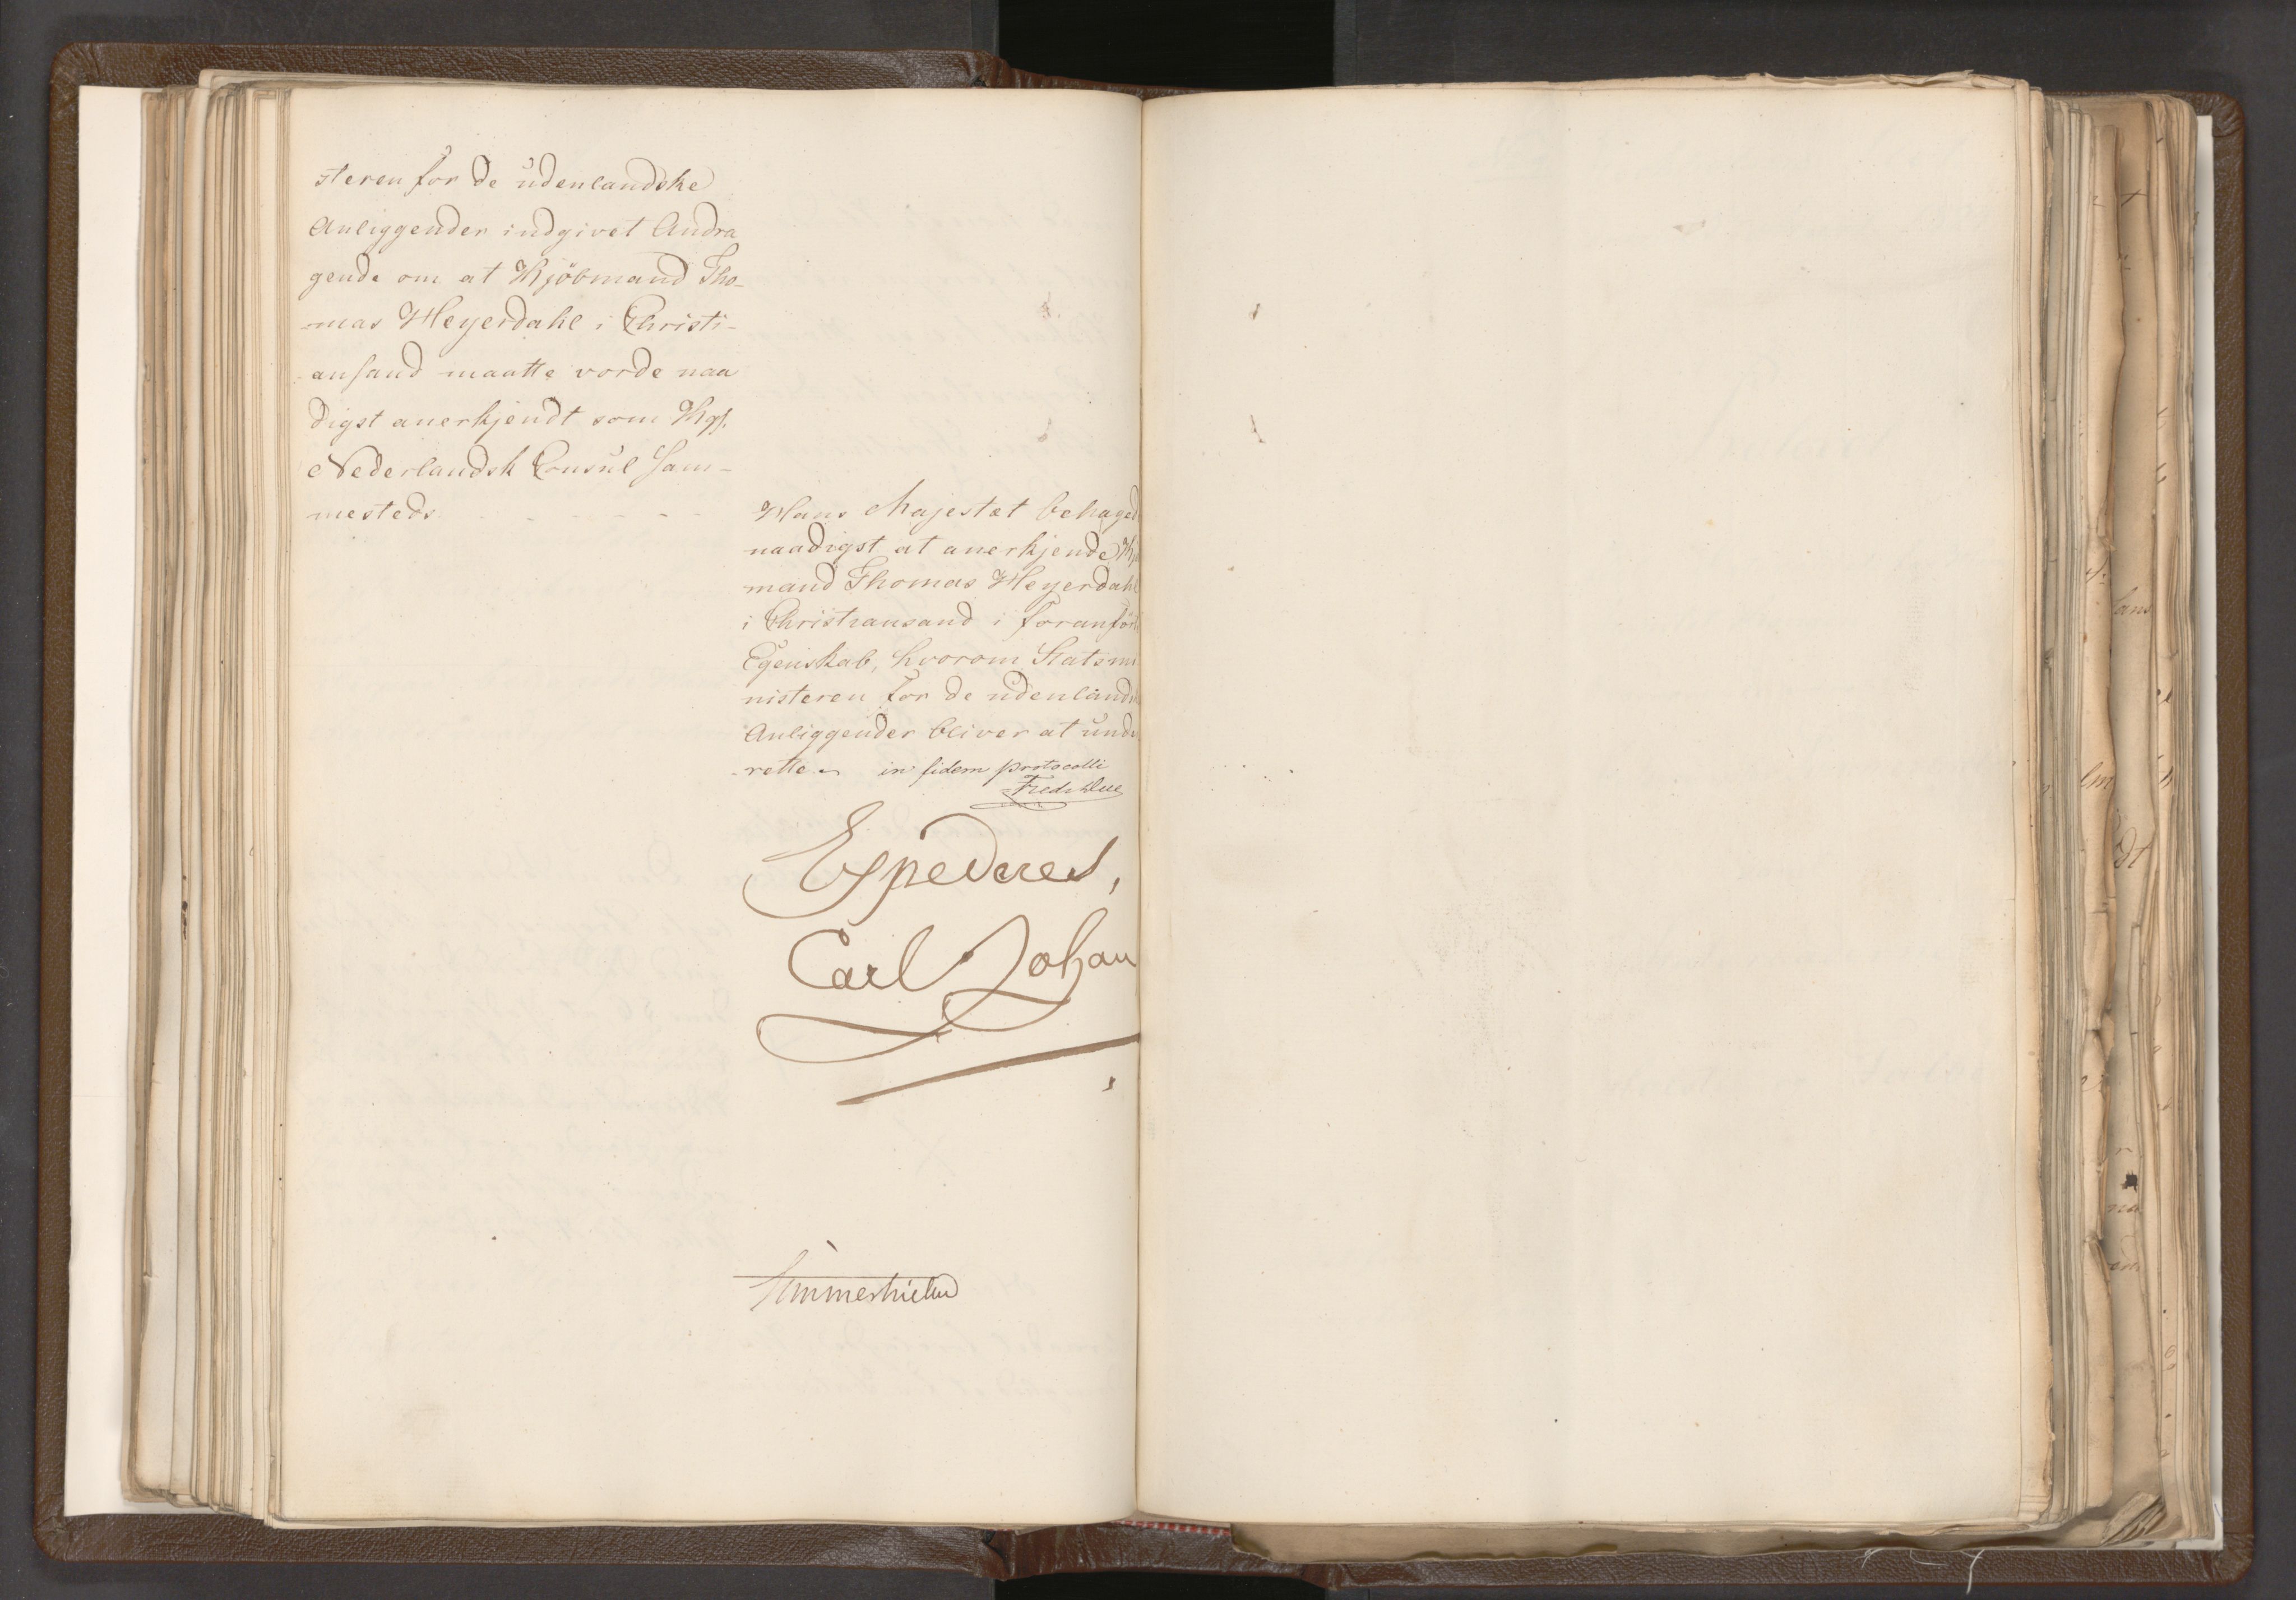 steren for de udenlandske
Anliggender indgivet Andra
gende om at Kjöbmand Tho-
mas Heyerdahl i Christi-
ansand maatte vorde naa
digst anerkjendt som Kgl.
Nederlandsk Consul sam-
mesteds - - - - -
Hans Majestæt behaged
naadigst at anerkjende Kjö
mand Thomas Heyerdahl
i Christiansand i foranför
Egenskab, hvorom Statsmi
nisteren for de udenlands
Anliggender bliver at unde
rette. in fidem protocolli
Fredr Due
Expederes,
Carl Johan